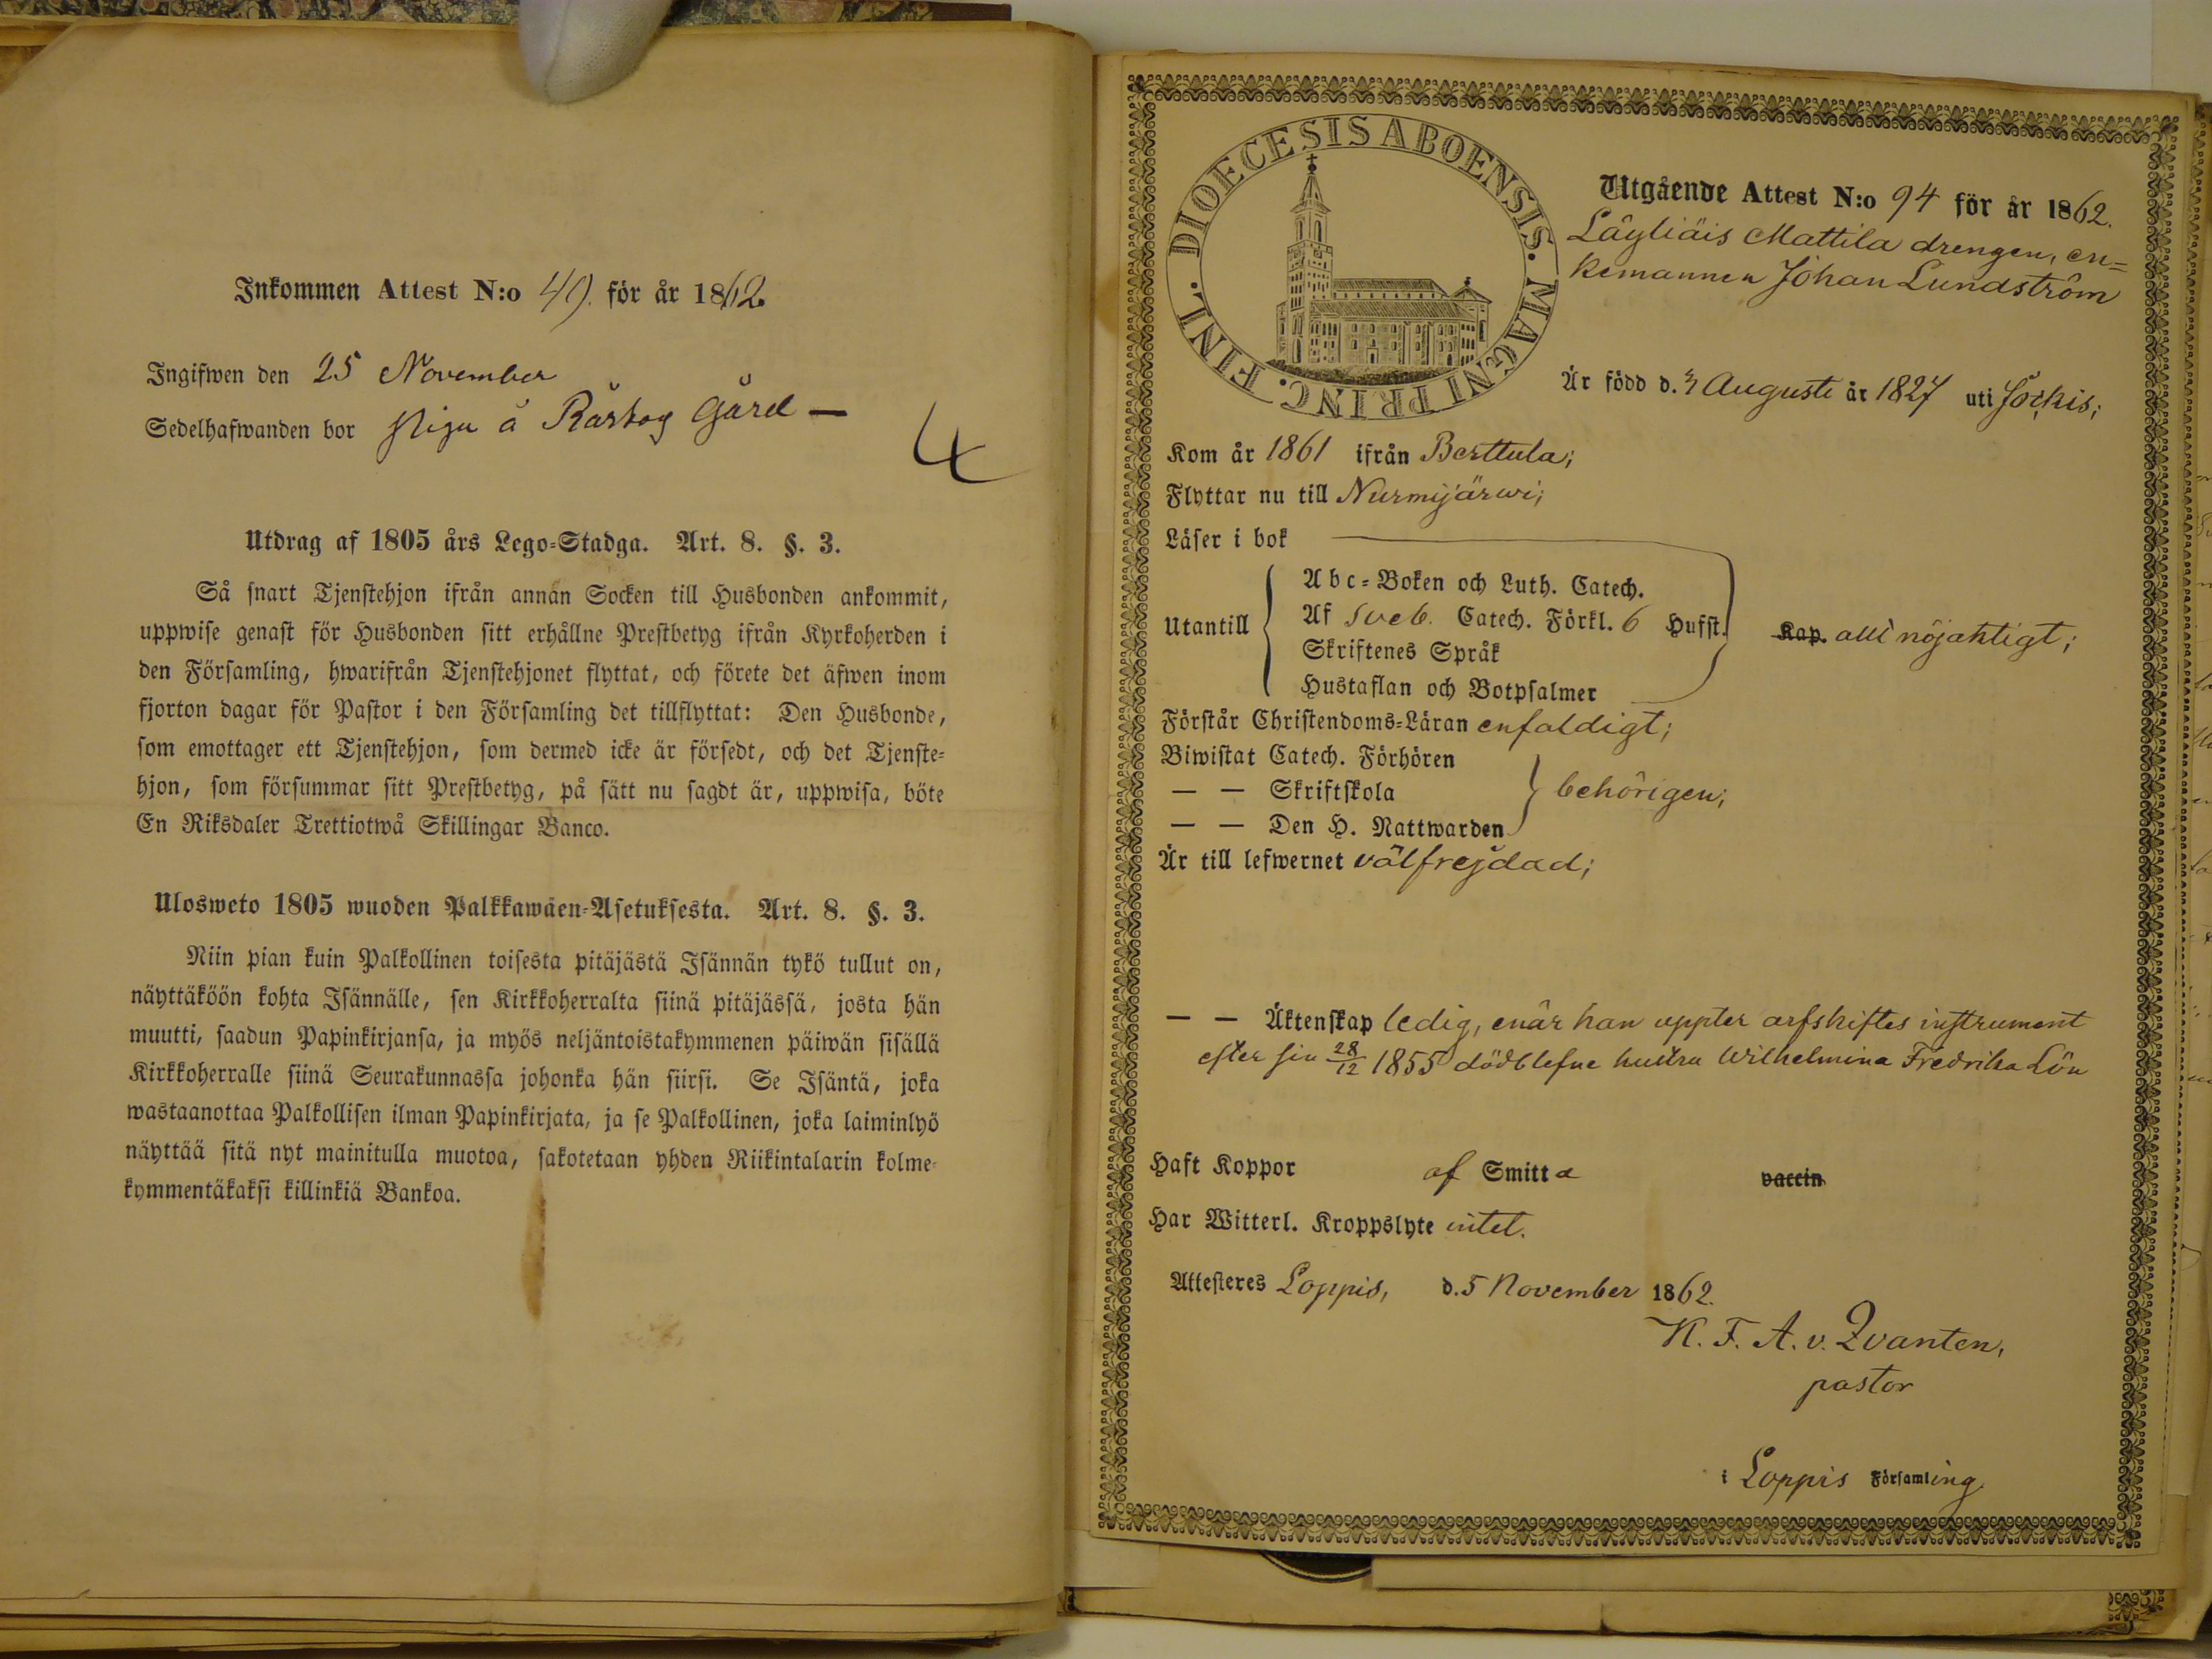 Inkommen Attest N:o 40. för år 1862.
Ingifwen den 25 November
Sedelhafwanden bor piga å Råskog Gård —
4
Utdrag af 1805 års Lego-Stadga. Art. 8. §. 3.
Så snart Tjenstehjon ifrån annan Socken till Husbonden ankommit,
uppwise genast för Husbonden sitt erhållne Prestbetyg ifrån Kyrkoherden i
den Församling, hwarifrån Tjenstehjonet flyttat, och förete det äfwen inom
fjorton dagar för Pastor i den Församling det tillflyttat: Den Husbonde,
som emottager ett Tjenstehjon, som dermed icke är försedt, och det Tjenste-
hjon, som försummar sitt Prestbetyg, på sätt nu sagdt är, uppwisa, böte
En Riksdaler Trettiotwå Skillingar Banco.
Ulosweto 1805 wuoden Palkkawäen-Asetuksesta. Art. 8. §. 3.
Niin pian kuin Palkollinen toisesta pitäjästä Isännän tykö tullut on,
näyttäköön kohta Isännälle, sen Kirkkoherralta siinä pitäjässä, josta hän
muutti, saadun Papinkirjansa, ja myös neljäntoistakymmenen päiwän sisällä
Kirkkoherralle siinä Seurakunnassa johonka hän siirsi. Se Isäntä, joka
wastaanottaa Palkollisen ilman Papinkirjata, ja se Palkollinen, joka laiminlyö
näyttää sitä nyt mainitulla muotoa, sakotetaan yhden Riikintalarin kolme-
kymmentäkaksi killinkiä Bankoa.
FINL. DIOECESIS ABOENSIS. MAGNI PRINC.
Utgående Attest N:o 94 för år 1862.
Läyliäis Mattila drengen, en=
kemannen Johan Lundström
Är född d. 3 Augusti år 1827 uti Jockis;
Kom år 1861 ifrån Berttula;
Flyttar nu till Nurmijärwi;
Läser i bok
Utantill
Abc-Boken och Luth. Catech.
Af Sveb. Catech. Förkl. 6 Hufst. Kap. allt nöjaktigt;
Skriftenes Språk
Hustaflan och Botpsalmer
Förstår Christendoms-Läran enfaldigt;
Biwistat Catech. Förhören
— — Skriftskola behörigen;
— — Den H. Nattwarden
Är till lefwernet välfrejdad;
— — Äktenskap ledig, enär han uppter arfskiftes instrument
efter sin 28/12 1855 dödblefne hustru Wilhelmina Fredrika Lön
Haft Koppor af Smitta vaccin
Har Witterl. Kroppslyte intet.
Attesteres Loppis, d. 5 November 1862.
K. F. A. v. Qvanten,
pastor
i Loppis Församling.